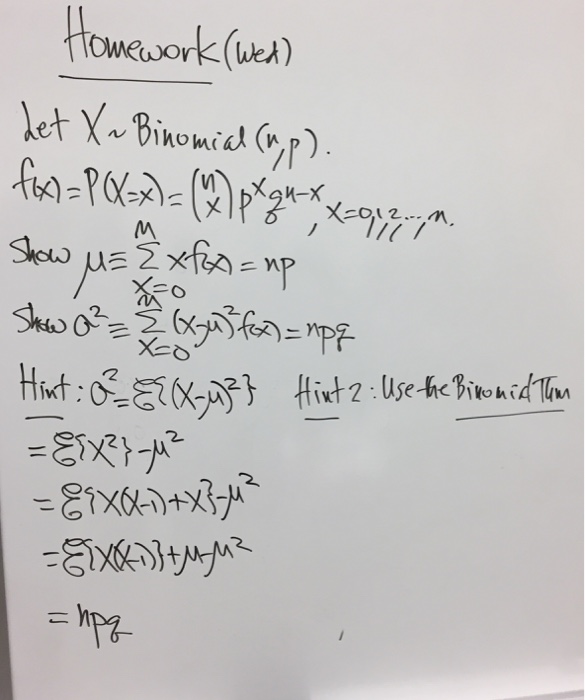 Homework (Wed)
Let X ~ Binomial (n,p).
f(x) = P(X=x) = (n x) p^x q^n-x, x=0,1,2...,n.
Show μ ≡ Σ x=0 n x f(x) = np
Show σ² ≡ Σ x=0 n (x-μ)² f(x) = npq
Hint: σ² = E{(X-μ)²} Hint 2: Use the Binomial Thm
= E{X²} - μ²
= E{X(X-1)+X} - μ²
= E{X(X-1)} + μ - μ²
= npq